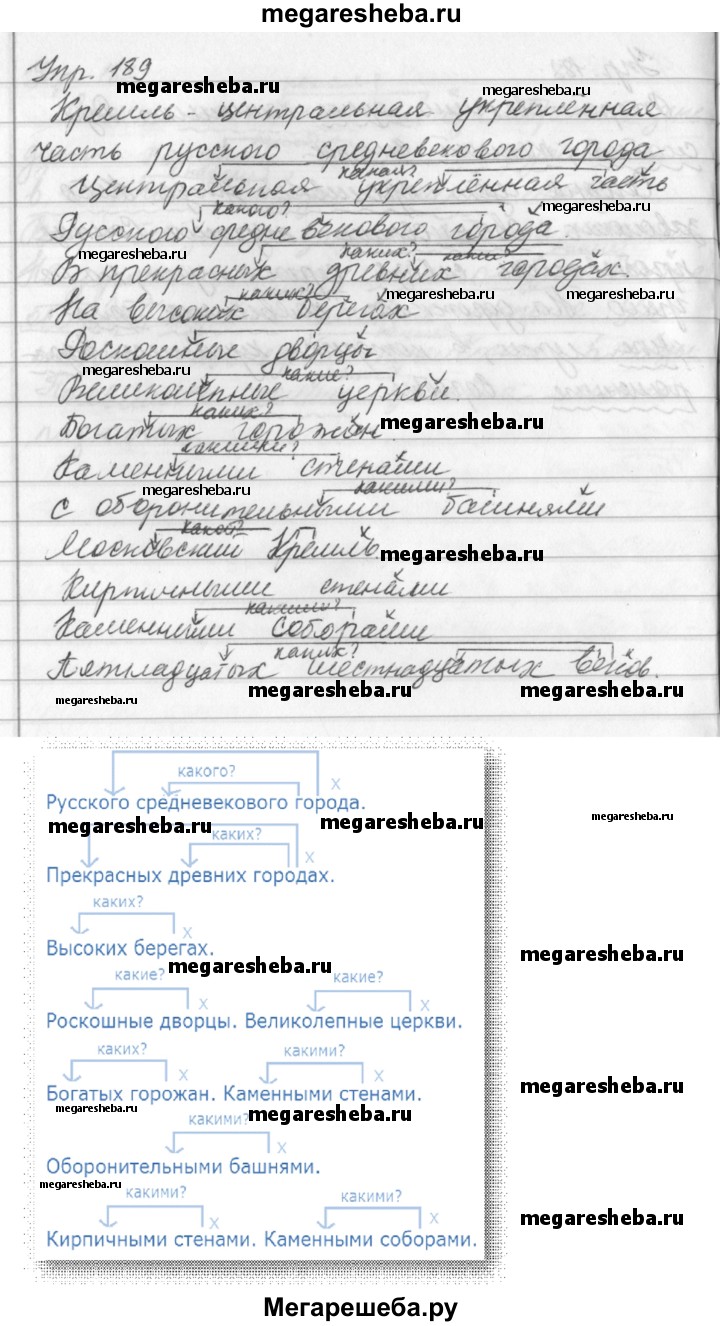 megaresheba.ru
Упр. 189
megaresheba.ru
megaresheba.ru
Кремль - центральная укрепленная
часть русского средневекового города
какая?
Центральная укреплённая часть
какого?
megaresheba.ru
Русского средневекового города.
megaresheba.ru
каких? каких?
В прекрасных древних городах.
megaresheba.ru
megaresheba.ru
каких?
На высоких берегах
Роскошные дворцы
megaresheba.ru
какие?
Великолепные церкви.
каких?
megaresheba.ru
Богатых горожан.
какими?
Каменными стенами
megaresheba.ru
какими?
с оборонительными башнями
какой?
Московский Кремль.
megaresheba.ru
Кирпичными стенами
какими?
Каменными соборами
каких?
Пятнадцатых шестнадцатых веков.
megaresheba.ru
megaresheba.ru
megaresheba.ru
какого?
х
Русского средневекового города.
megaresheba.ru
megaresheba.ru
megaresheba.ru
каких?
х
Прекрасных древних городах.
каких?
х
Высоких берегах.
megaresheba.ru
megaresheba.ru
какие? какие?
х х
Роскошные дворцы. Великолепные церкви.
каких? какими?
х х
megaresheba.ru
Богатых горожан. Каменными стенами.
megaresheba.ru
megaresheba.ru
какими?
х
Оборонительными башнями.
megaresheba.ru
какими? какими?
х х
megaresheba.ru
Кирпичными стенами. Каменными соборами.
Мегарешеба.ру